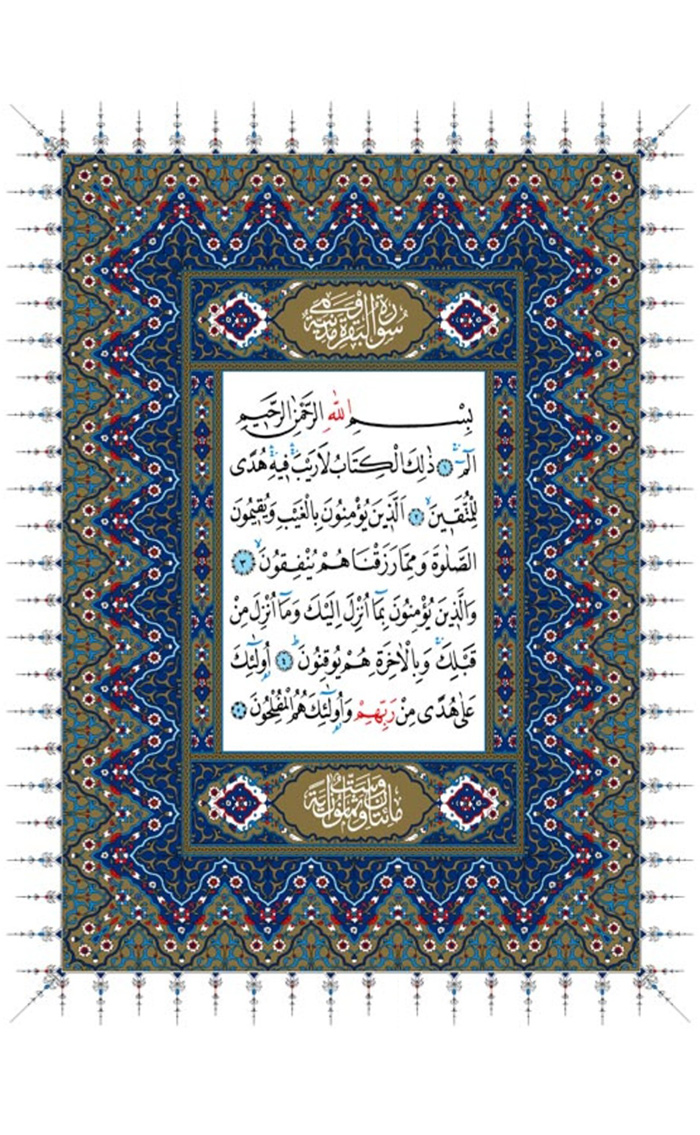 سُورَةُ الْبَقَرَةِ مَدَنِيَّةٌ وَهِيَ
بِسْمِ اللّٰهِ الرَّحْمٰنِ الرَّحٖيمِ
الٓمٓ ﴿١﴾ ذٰلِكَ الْكِتَابُ لَا رَيْبَ فٖيهِ هُدًى
لِلْمُتَّقٖينَ ﴿٢﴾ اَلَّذٖينَ يُؤْمِنُونَ بِالْغَيْبِ وَيُقٖيمُونَ
الصَّلٰوةَ وَمِمَّا رَزَقْنَاهُمْ يُنْفِقُونَ ﴿٣﴾
وَالَّذٖينَ يُؤْمِنُونَ بِمَٓا اُنْزِلَ اِلَيْكَ وَمَٓا اُنْزِلَ مِنْ
قَبْلِكَ وَبِالْاٰخِرَةِ هُمْ يُوقِنُونَ ﴿٤﴾ اُولٰٓئِكَ
عَلٰى هُدًى مِنْ رَبِّهِمْ وَاُولٰٓئِكَ هُمُ الْمُفْلِحُونَ ﴿٥﴾
مِائَتَانِ وَسِتٌّ وَثَمَانُونَ اٰيَةً